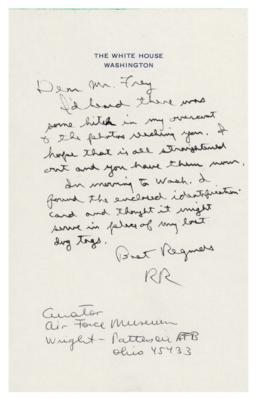 THE WHITE HOUSE
WASHINGTON
Dear Mr. Frey
I'd heard there was
some hitch in my overcoat
& the photos reaching you. I
hope that is all straightened
out and you have them now.
In moving to Wash. I
found the enclosed identification
card and thought it might
serve in place of my lost
dog tags.
Best Regards
RR
Curator
Air Force Museum
Wright-Patterson AFB
Ohio 45433